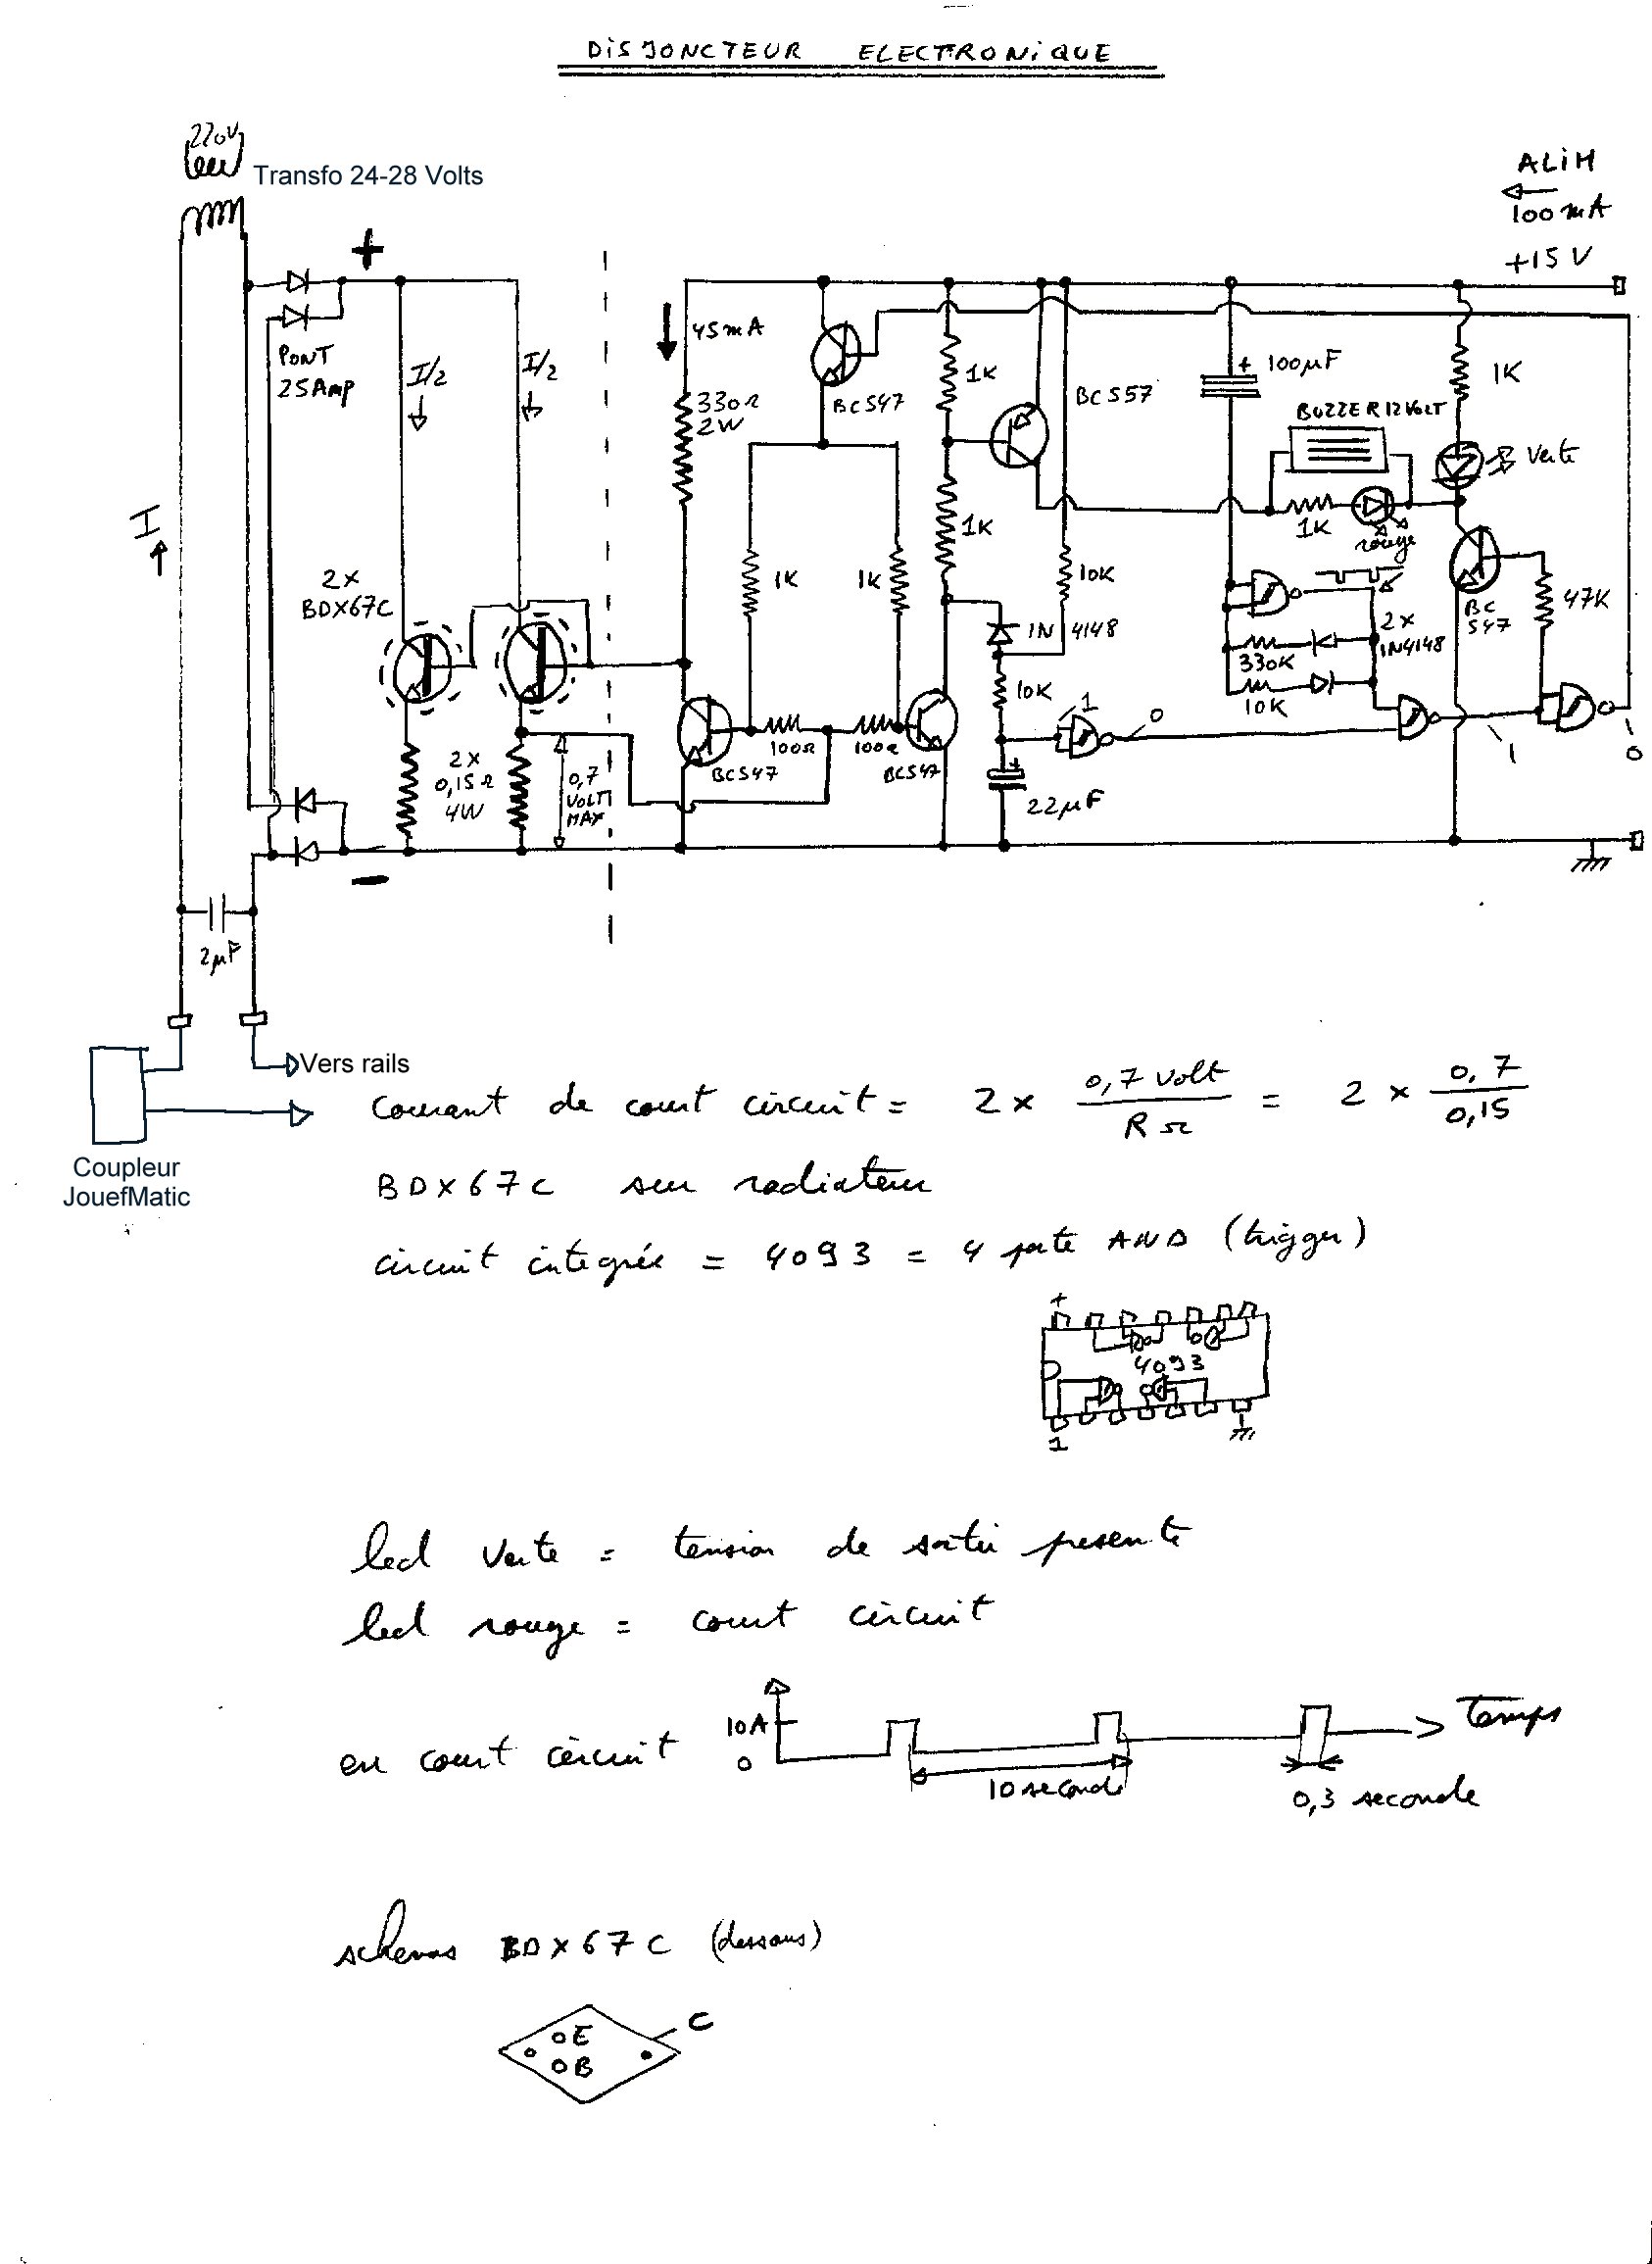 DISJONCTEUR ELECTRONIQUE
220V
Transfo 24-28 Volts
ALIM
100mA
+15V
+
PONT
25Amp
I/2
I/2
45mA
330Ω
2W
BC547
1K
BC557
+ 100µF
BUZZER 12VOLT
1K
verte
I
2x
BDX67C
1K
1K
1K
10K
1K
rouge
BC
547
47K
1N4148
2x
1N4148
330K
10K
10K
1
0
1
0
2x
0,15Ω
4W
0,7
VOLT
MAX
BC547
100Ω
100Ω
BC547
+
22µF
-
2µF
Vers rails
Coupleur
JouefMatic
courant de court circuit = 2 x 0,7 volt / R Ω = 2 x 0,7 / 0,15
BDX67C sur radiateur
circuit integrée = 4093 = 4 porte AND (trigger)
+
4093
1
led verte = tension de sortie presente
led rouge = court circuit
en court circuit
10A
0
10 seconde
0,3 seconde
Temps
schemas BDX67C (dessous)
E
B
C